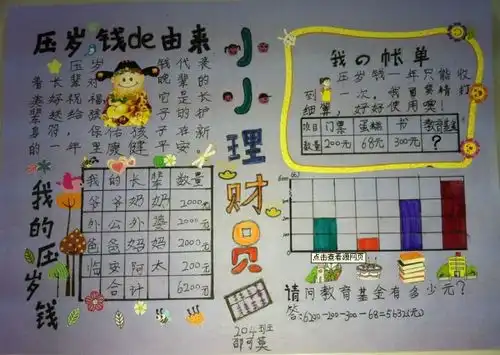 压岁钱de由来
压岁钱代表
着长辈 晚辈的
美好祝福 它是长
辈送给孩子的护
身符,保佑孩子在新
的一年里健康平安。
我的压岁钱
我的长辈 数量
爷爷奶奶 2000元
外公外婆 2000元
爸爸妈妈 2000元
临安阿太 200元
合计 6200元
小小理财员
204班
我の帐单
压岁钱一年只能收
到一次,我要精打
细算,好好使用哦!
项目 门票 蛋糕 书 教育基金
数量 200元 68元 300元 ?
(元)
点击查看源网页
请问教育基金有多少元?
答:6200-200-300-68=5632(元)